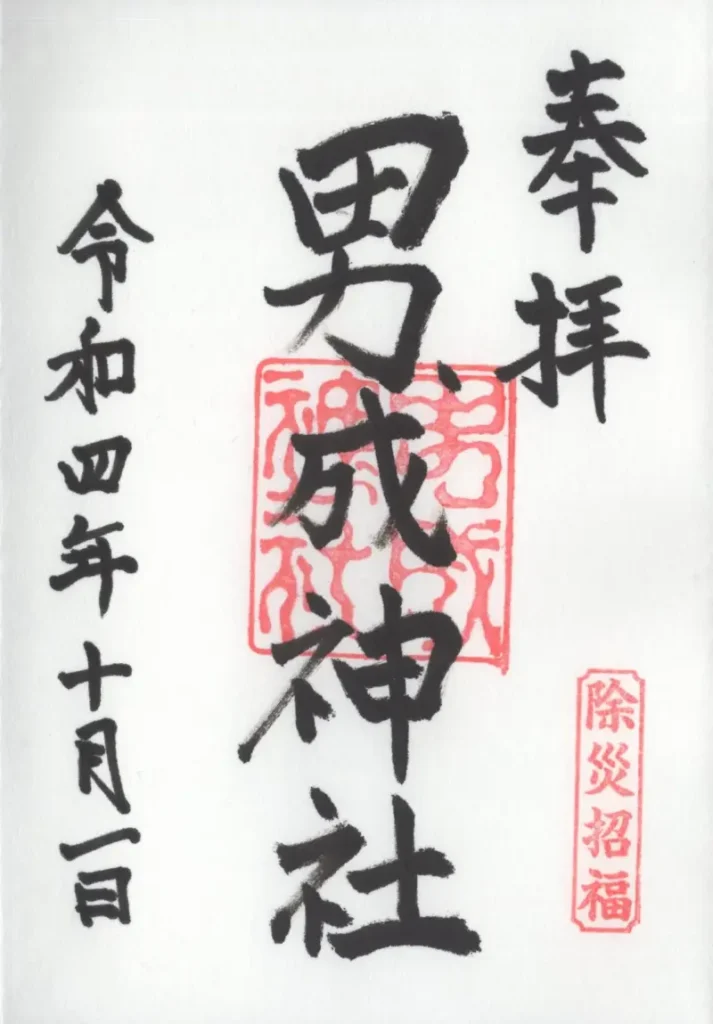 奉拝
除災招福
男成神社
男成
神社
令和四年十月一日